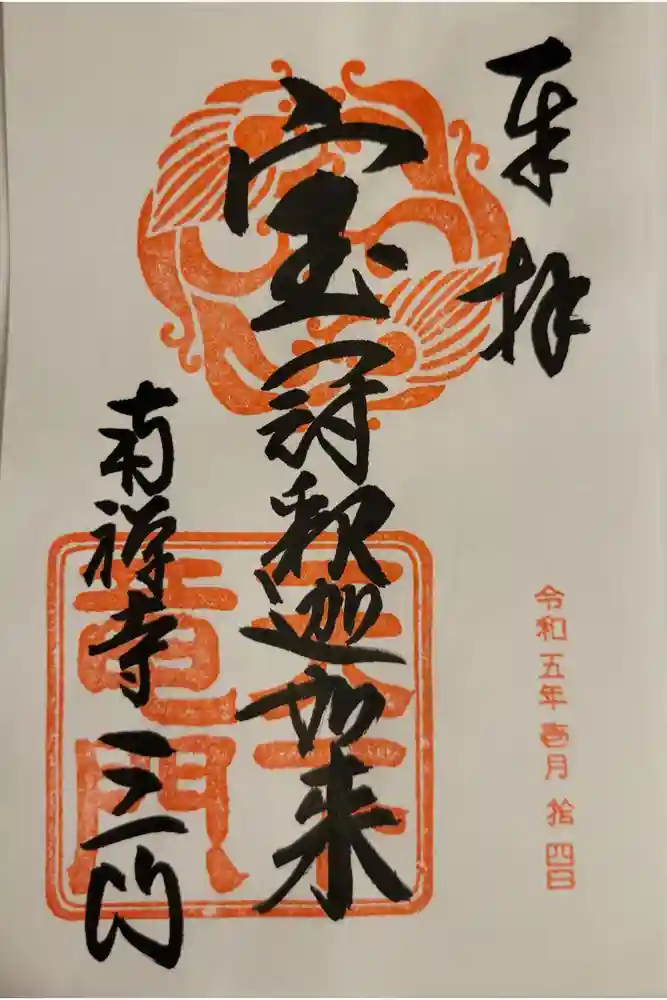 奉拝
令和五年壱月拾四日
宝冠釈迦如来
南禅寺三門